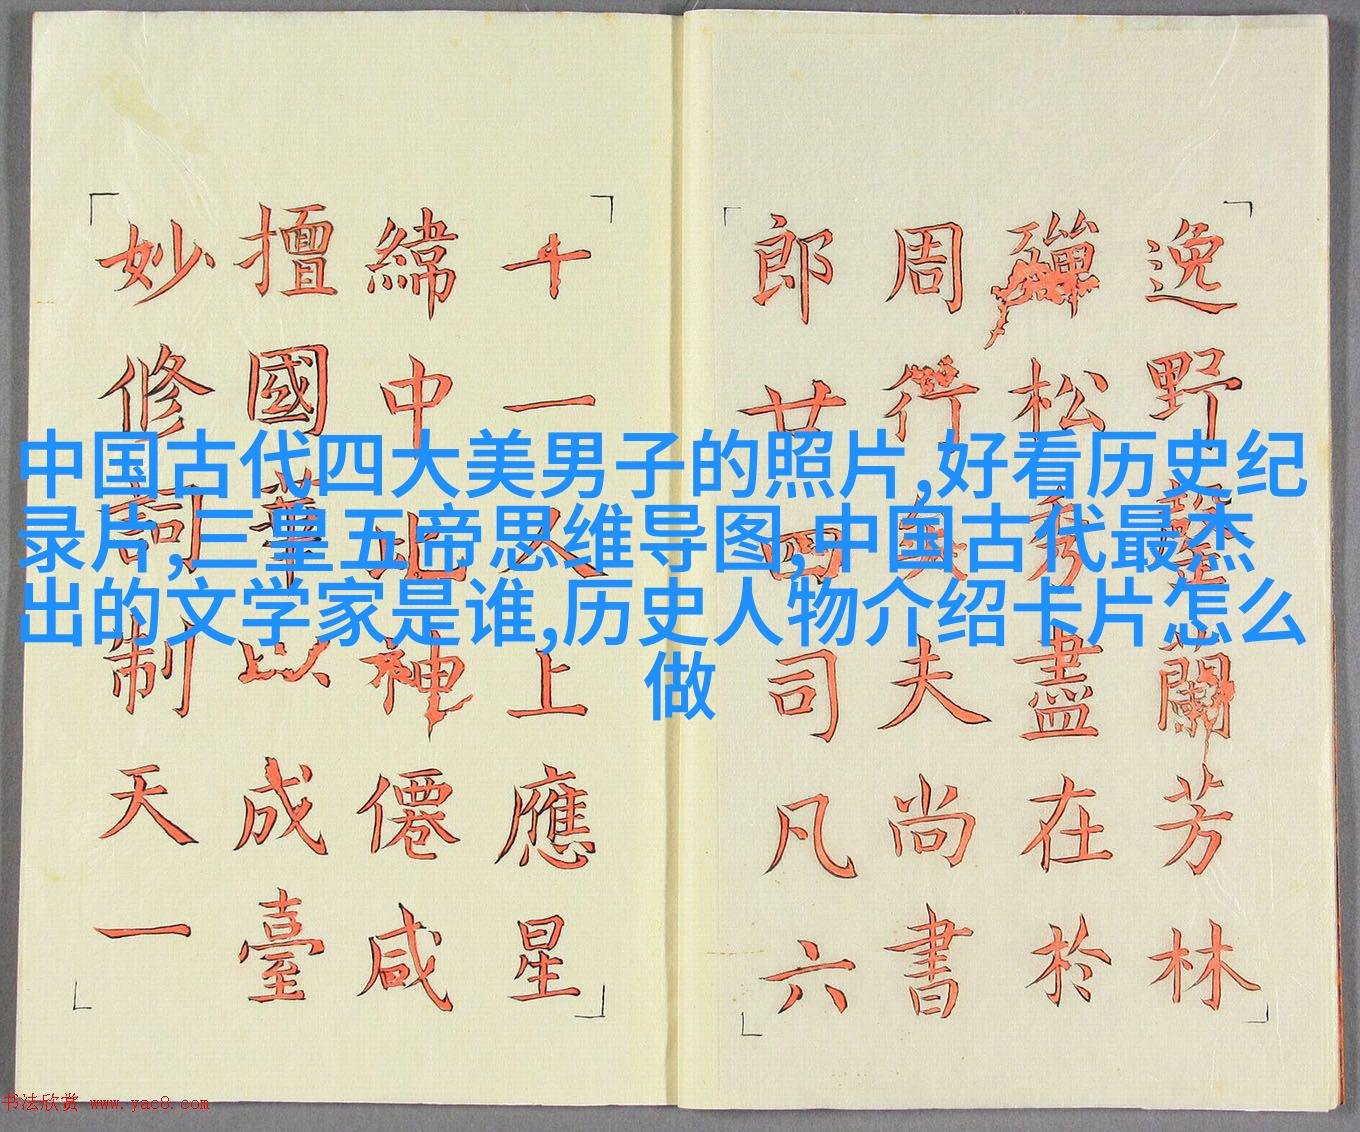 中国古代四大美男子的照片,好看历史纪
录片,三皇五帝思维导图,中国古代最杰
出的文学家是谁,历史人物介绍卡片怎么
做
逸野罄蘭芳林
殫松秀盡在於
周行矣夫尚書
郎廿四司凡六
十一人上應星
緯中比神僊咸
擅國華以成臺
妙修詞制天一
书法欣赏 www.yac8.com